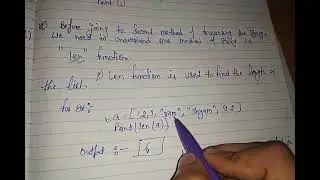 Print (i)
Before going to second method of traversing the string,
we need to understand one method of string i.e.
"Len" function
→ Len function is used to find the length of
the list.
for ex:-
a = [1,2,3, "ram", "shyam", 9.2]
Print (len(a))
output :- 6